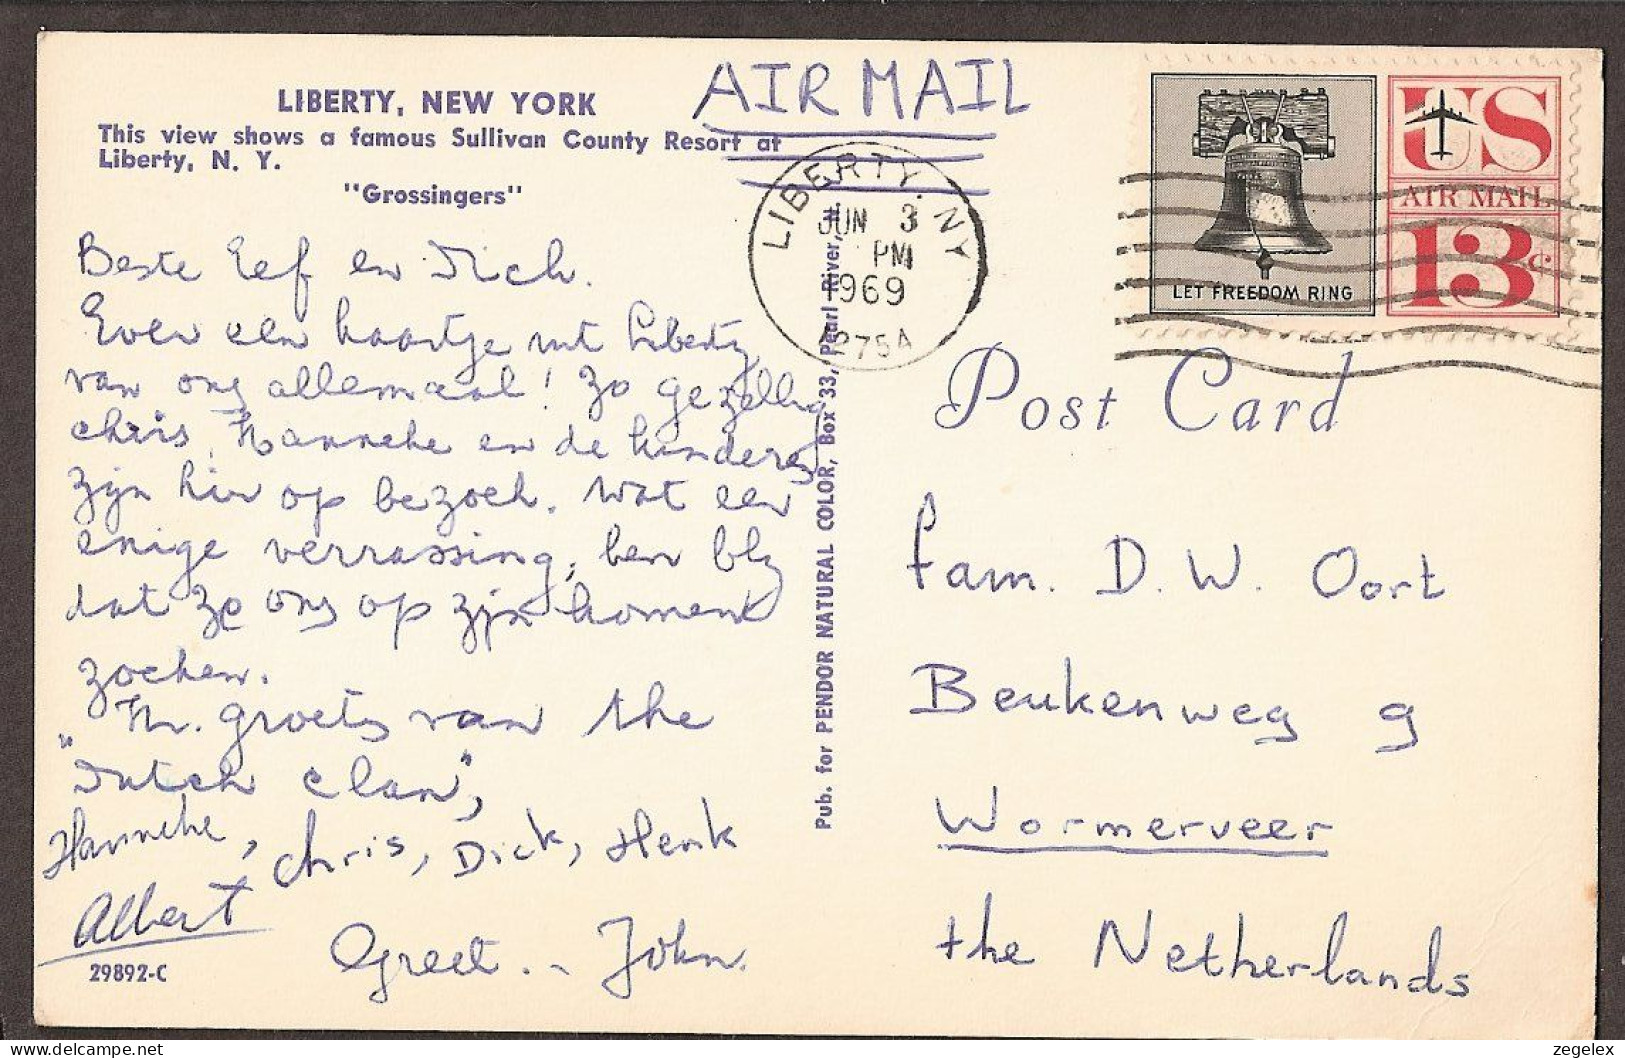 LIBERTY, NEW YORK
This view shows a famous Sullivan County Resort at
Liberty, N. Y.
"Grossingers"
AIR MAIL
LIBERTY. NY
JUN 3
PM
1969
1275A
LET FREEDOM RING
US
AIR MAIL
13c
Beste Eef en Dick.
Even een kaartje uit Liberty
van ons allemaal! Zo gezellig
chris, Hanneke en de kinderen
zijn hier op bezoek. Wat een
enige verrassing, ben blij
dat ze ons op zijn komen
zoeken.
Hr. groetjes van the
"Dutch clan",
Hanneke, Chris, Dick, Henk
Albert
Greet. - John.
29892-C
Pub. for PENDOR NATURAL COLOR, Box 33, Pearl River, N.
Post Card
fam. D. W. Oort
Beukenweg 9
Wormerveer
the Netherlands
zegelex